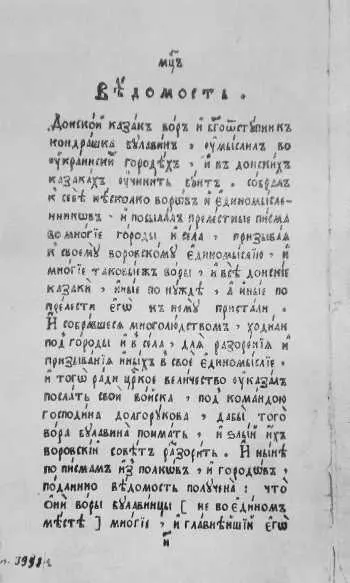 мцъ
Вѣдомость .
Донской казакъ воръ и бг҃оѿступникъ
кондрашка булавинъ , оумыслилъ во
оукраинскиⷯ городѣхъ , и в донскихъ
казакахъ оучинить бунтъ . собралъ
к себѣ нѣсколько воровъ и единомысле-
нниковъ , и посылалъ прелестные писма
во многіе городы и села , призывая
к своему воровскому единомыслению , и
многіе таковыежъ воры , и всѣ донскіе
казаки , иные по нуждѣ , а иные по
прелести егѡ к нему пристали .
И собравшеся многолюдствомъ , ходили
под городы и в села , для разоренія и
призыванія иныхъ в своё единомысліе .
и тогѡ ради цр҃кое величество оуказалъ
послать свои войска , под командою
господина долгорукова , дабы того
вора булавина поимать , и ѕлый ихъ
воровскій совѣтъ разорить . И нынѣ
по писмамъ из полковъ , и городовъ ,
подлинно вѣдомость получена : что
ѻнѝ воры булавинцы [ не во единомъ
мѣстѣ ] многіе , и главнѣйшіи егѡ
й